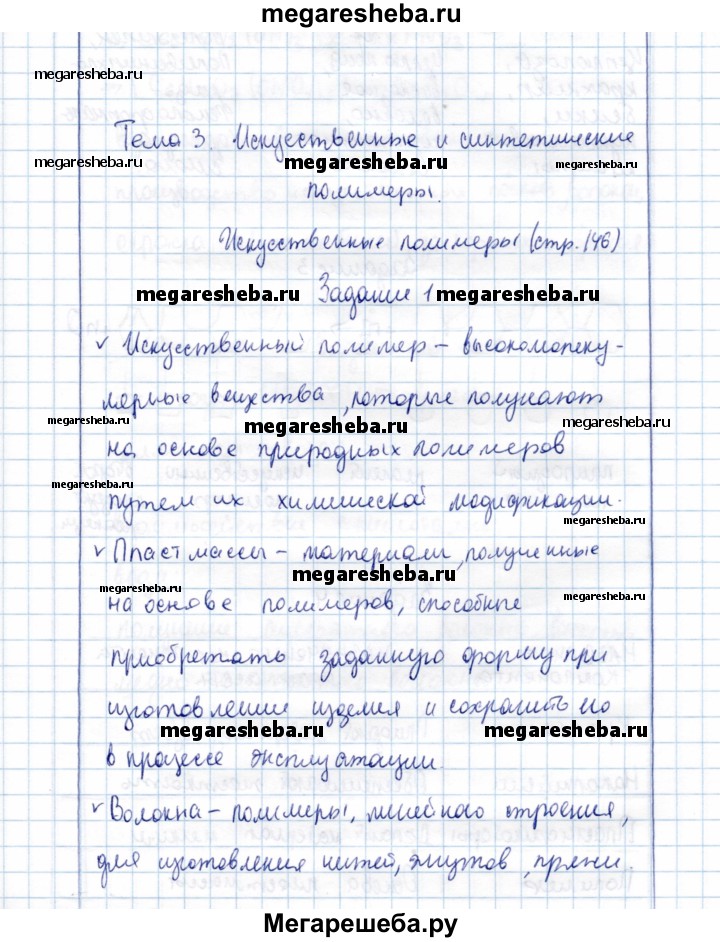 megaresheba.ru
megaresheba.ru
Тема 3. Искусственные и синтетические
megaresheba.ru megaresheba.ru megaresheba.ru
полимеры.
Искусственные полимеры (стр. 146)
megaresheba.ru Задание 1 megaresheba.ru
v Искусственный полимер – высокомолеку-
лярные вещества, которые получают
megaresheba.ru megaresheba.ru megaresheba.ru
на основе природных полимеров
megaresheba.ru
путем их химической модификации.
megaresheba.ru
v Пластмассы – материалы, полученные
megaresheba.ru
megaresheba.ru megaresheba.ru
на основе полимеров, способные
приобретать заданную форму при
изготовлении изделия и сохранить его
megaresheba.ru megaresheba.ru
в процессе эксплуатации.
v Волокна – полимеры, линейного строения,
для изготовления нитей, жгутов, пряжи.
Мегарешеба.ру